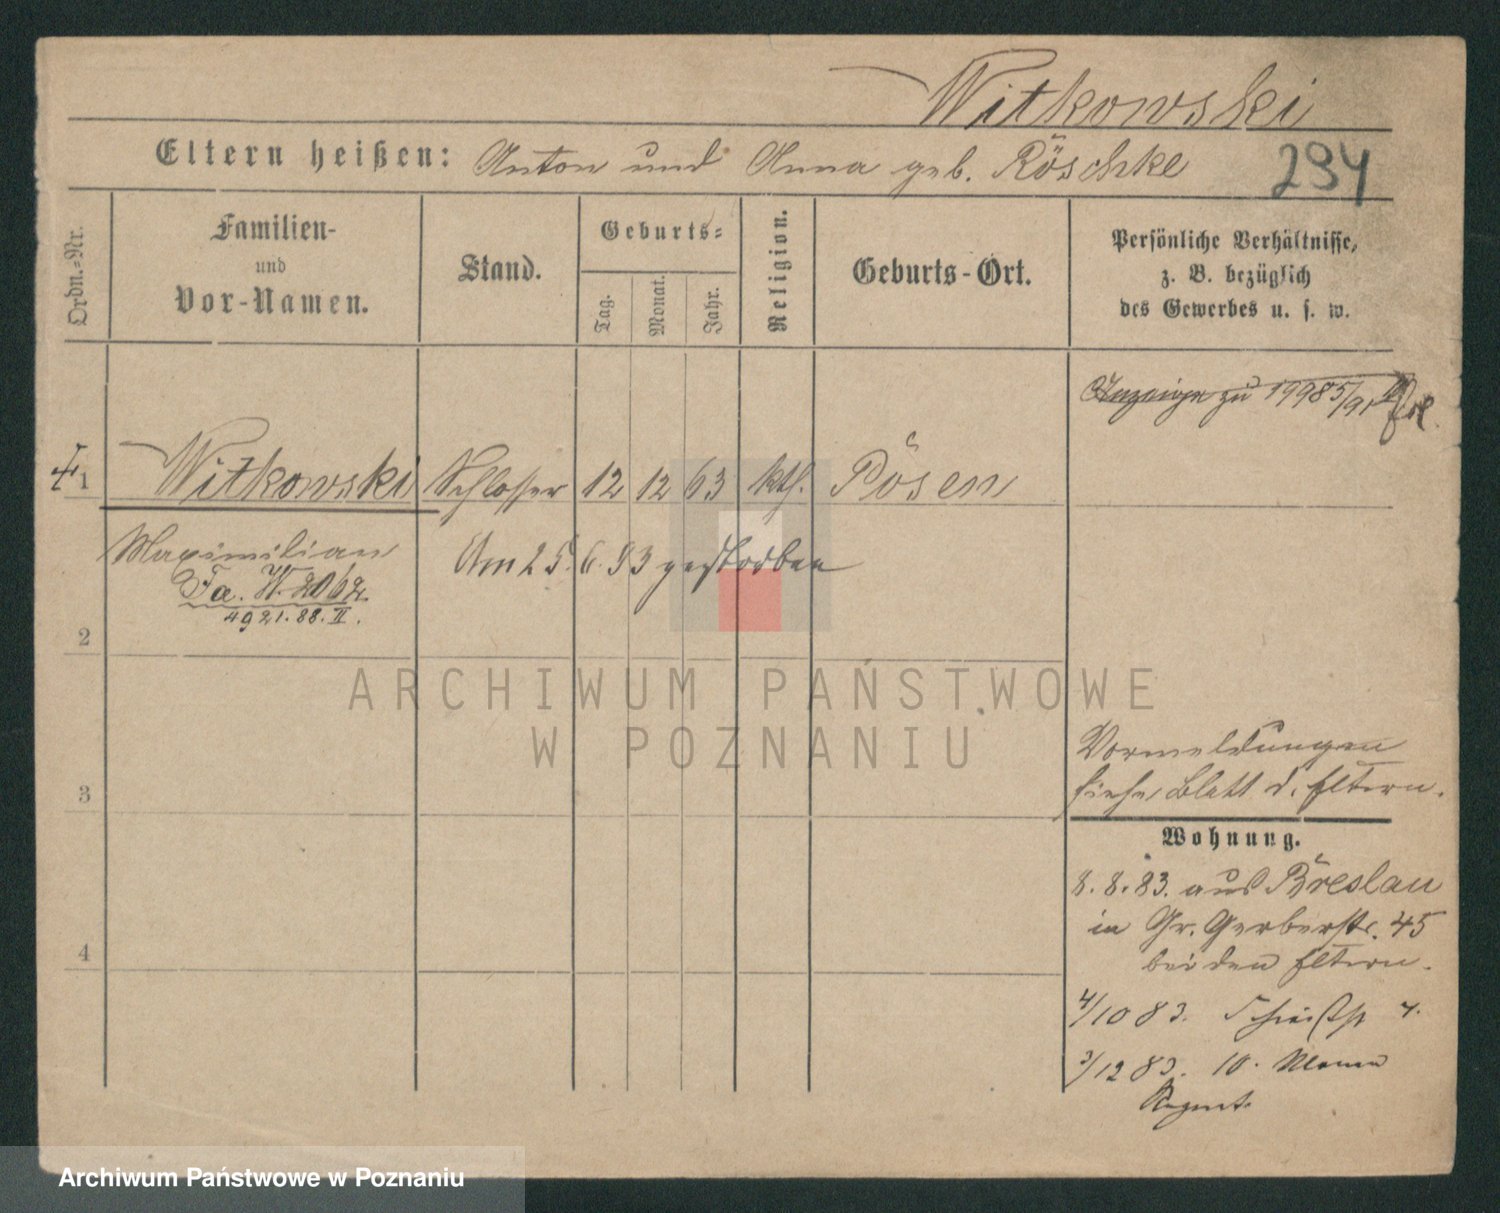 Witkowski
Eltern heißen: Anton und Anna geb. Röschke
294
Ordn.-Nr.
Familien-
und
Vor-Namen.
Stand.
Geburts-
Tag.
Monat.
Jahr.
Religion.
Geburts-Ort.
Persönliche Verhältnisse,
z. B. bezüglich
des Gewerbes u. s. w.
Anzeige zu 19985/91 II
1 Witkowski Schlosser 12 12 63 kth. Posen
Maximilian
Am 25. 6. 93 gestorben
Fa. W. 2062
4921.88.II.
2
ARCHIWUM PAŃSTWOWE
W POZNANIU
Vormeldungen
siehe Blatt d. Eltern.
3
Wohnung.
8. 8. 83. aus Breslau
in Gr. Gerberstr. 45
bei den Eltern.
4
4/10 83. 4.
3/12 83. 10. Ulanen
Regmt.
Archiwum Państwowe w Poznaniu